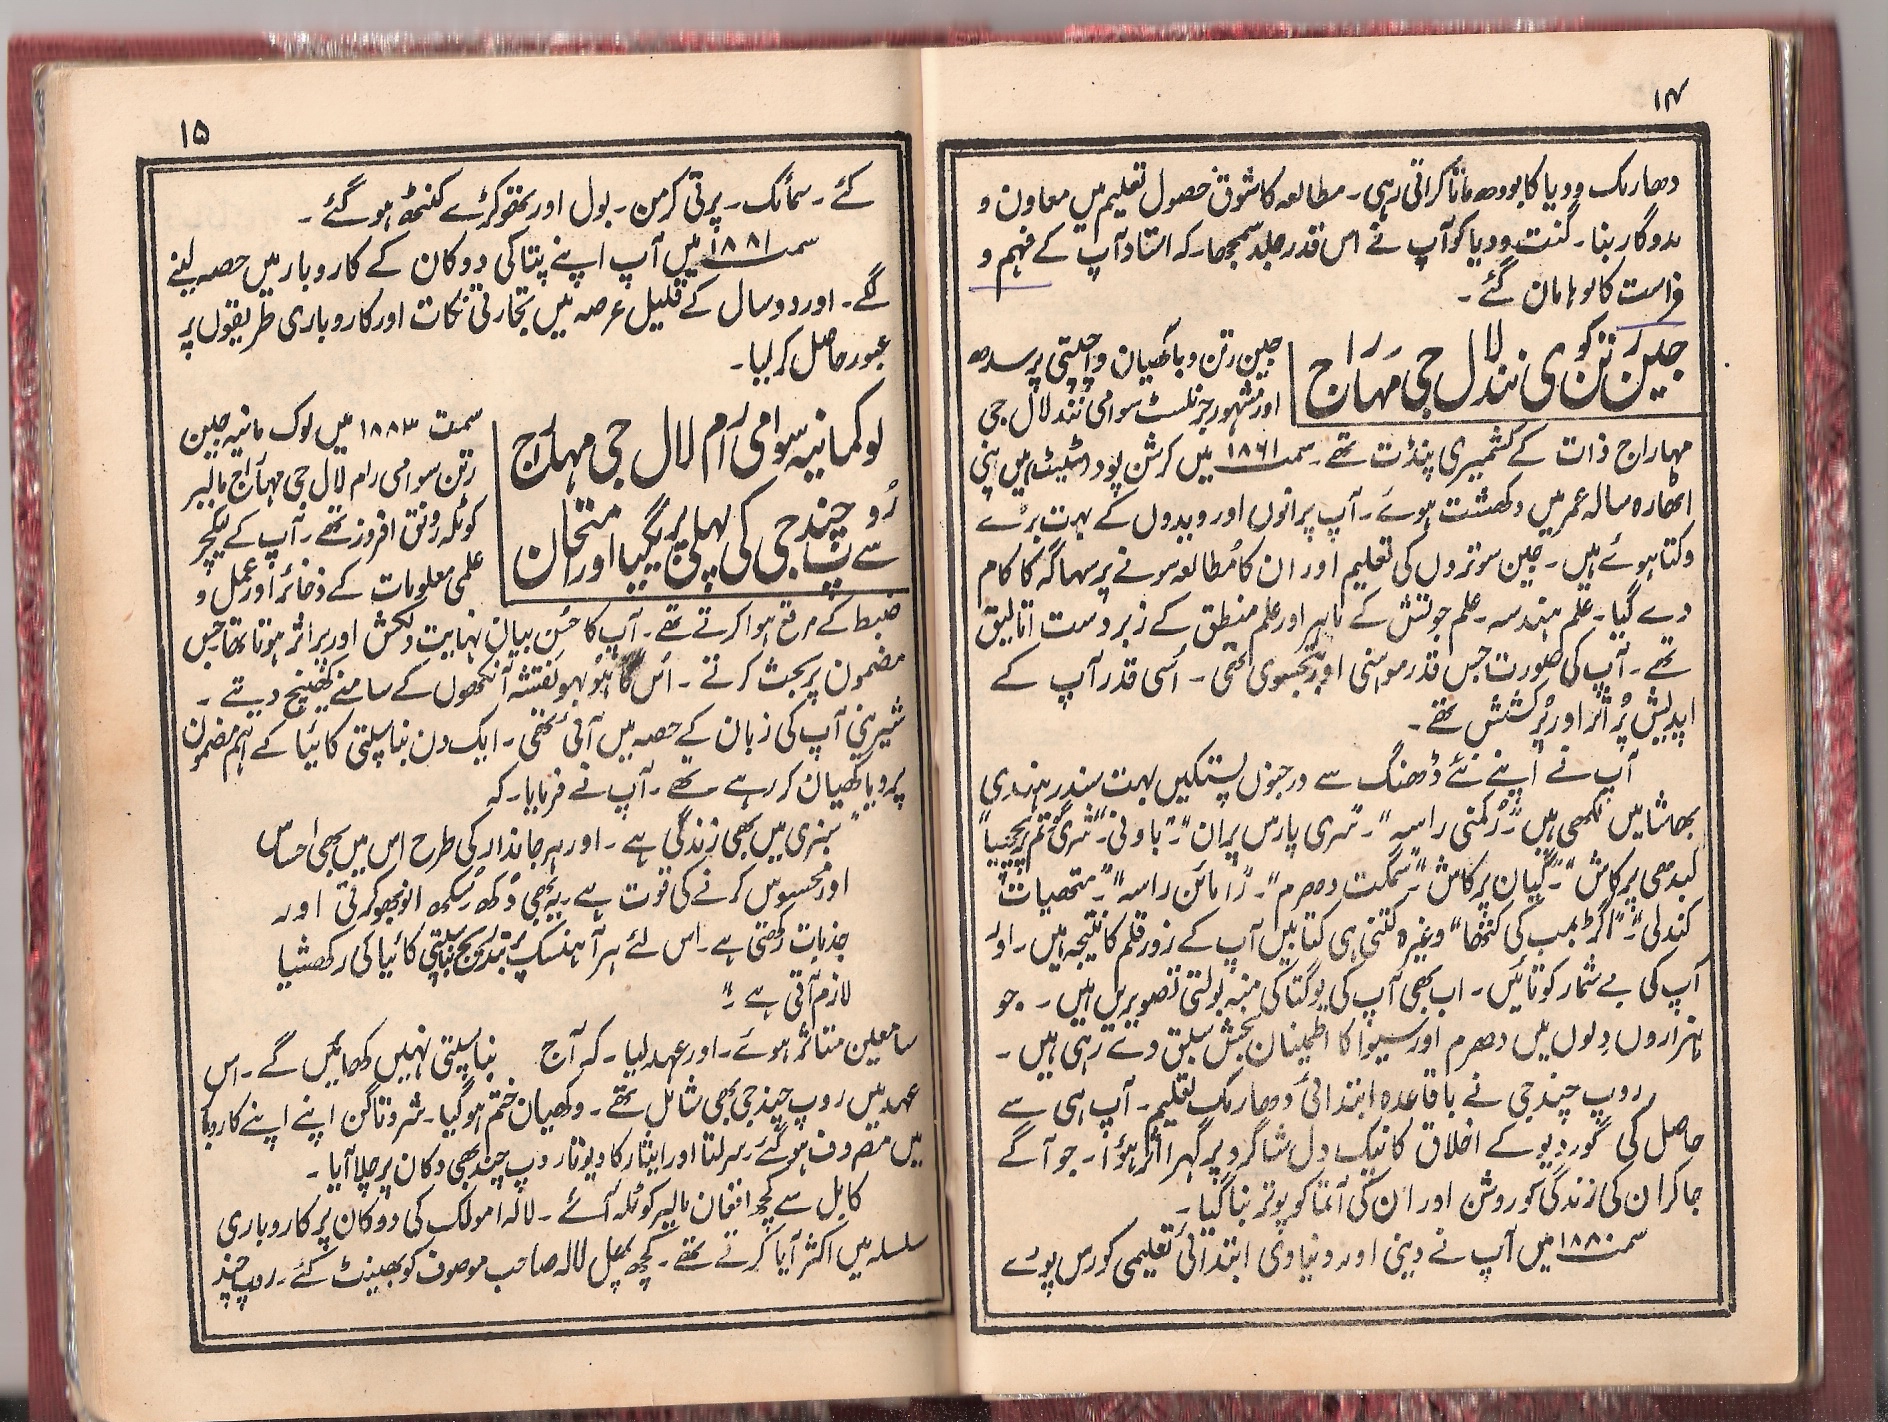 ۱۴
دھارمک ودیا کا بودھ ماتا کراتی رہی۔ مطالعہ کا شوق حصول تعلیم میں معاون و
مددگار بنا۔ گنت ودیا کو آپ نے اس قدر جلد سمجھا۔ کہ استاد آپ کے فہم و
فراست کا لوہا مان گئے۔
جین رتن کوی نند لال جی مہاراج
جین رتن ویاکھیان واچسپتی پرسدھ
اور مشہور جرنلسٹ سوامی نند لال جی
مہاراج ذات کے کشمیری پنڈت تھے۔ سمت ۱۸۶۱ میں کرشن پور اسٹیٹ میں اپنی
اٹھارہ سالہ عمر میں دکھشت ہوئے۔ آپ پرانوں اور ویدوں کے بہت بڑے
وکتا ہوئے ہیں۔ جین سوتروں کی تعلیم اور ان کا مُطالعہ سونے پر سہاگہ کا کام
دے گیا۔ علم ہندسہ۔ علم جوتش کے ماہر اور علم منطق کے زبردست اتالیق
تھے۔ آپ کی صورت جس قدر موہنی اور تیجسوی تھی۔ اُسی قدر آپ کے
اپدیش پُر اثر اور پُرکشش تھے۔
آپ نے اپنے نئے ڈھنگ سے درجنوں پستکیں بہت سندر ہندی
بھاشا میں لکھی ہیں۔ "رُکمنی راسہ"۔ "شری پارس پران"۔ "باونی"۔ "شری گوتم پرچھیا"
لبدھی پرکاش"۔ "گیان پرکاش"۔ "سمکت دھرم"۔ "رامائن راسہ"۔ "متھیات
کندلی"۔ "اگڑ بمب کی کتھا" وغیرہ کتنی ہی کتابیں آپ کے زور قلم کا نتیجہ ہیں۔ اور
آپ کی بے شمار کوتائیں۔ اب بھی آپ کی یوگتا کی منہ بولتی تصویریں ہیں۔ جو
ہزاروں دِلوں میں دھرم اور سیوا کا اطمینان بخش سبق دے رہی ہیں۔
روپ چند جی نے باقاعدہ ابتدائی دھارمک تعلیم۔ آپ ہی سے
حاصل کی گوردیو کے اخلاق کا نیک دل شاگرد پر گہرا اثر ہؤا۔ جو آگے
جا کر ان کی زندگی کو روشن اور ان کی آتما کو پوتر بنا گیا۔
سمت ۱۸۸۰ میں آپ نے دینی اور دنیاوی ابتدائی تعلیمی کورس پورے
۱۵
کئے۔ سمائک۔ پرتی کرمن۔ بول اور تھوکڑے کنٹھ ہو گئے۔
سمت ۱۸۸۱ میں آپ اپنے پتا کی دوکان کے کاروبار میں حصہ لینے
لگے۔ اور دو سال کے قلیل عرصہ میں تجارتی نکات اور کاروباری طریقوں پر
عبور حاصل کر لیا۔
لوکمانیہ سوامی رام لال جی مہاراج
سے رُوپ چند جی کی پہلی پرتگیا اور امتحان
سمت ۱۸۸۳ میں لوک مانیہ جین
رتن سوامی رام لال جی مہاراج مالیر
کوٹلہ رونق افروز تھے۔ آپ کے لیکچر
علمی معلومات کے ذخائر اور عمل و
ضبط کے مرقع ہوا کرتے تھے۔ آپ کا حُسن بیان نہایت دلکش اور پر اثر ہوتا تھا جس
مضمون پر بحث کرتے۔ اُس کا ہُو بہو نقشہ آنکھوں کے سامنے کھینچ دیتے۔
شیرینی آپ کی زبان کے حصہ میں آئی تھی۔ ایک دن بناسپتی کائیا کے اہم مضمون
پر ویاکھیان کر رہے تھے۔ آپ نے فرمایا۔ کہ
"سبزی میں بھی زندگی ہے۔ اور ہر جاندار کی طرح اس میں بھی احساس
اور محسوس کرنے کی قوت ہے۔ یہ بھی دُکھ سُکھ انوبھو کرتی اور
جذبات رکھتی ہے۔ اس لئے ہر آہنسک پر بتدریج بناسپتی کائیا کی رکھشیا
لازم آتی ہے۔"
سامعین متاثر ہوئے۔ اور عہد لیا۔ کہ آج بناسپتی نہیں کھائیں گے۔ اس
عہد میں روپ چند جی بھی شامل تھے۔ وکھیان ختم ہو گیا۔ شروتاگن اپنے اپنے کاروبار
میں مصروف ہو گئے۔ سرلتا اور ایثار کا دیوتا روپ چند بھی دکان پر چلا آیا۔
کابل سے کچھ افغان مالیر کوٹلہ آئے۔ لالہ امولک کی دوکان پر کاروباری
سلسلہ میں اکثر آیا کرتے تھے۔ کچھ پھل لالہ صاحب موصوف کو بھینٹ کئے۔ روپ چند